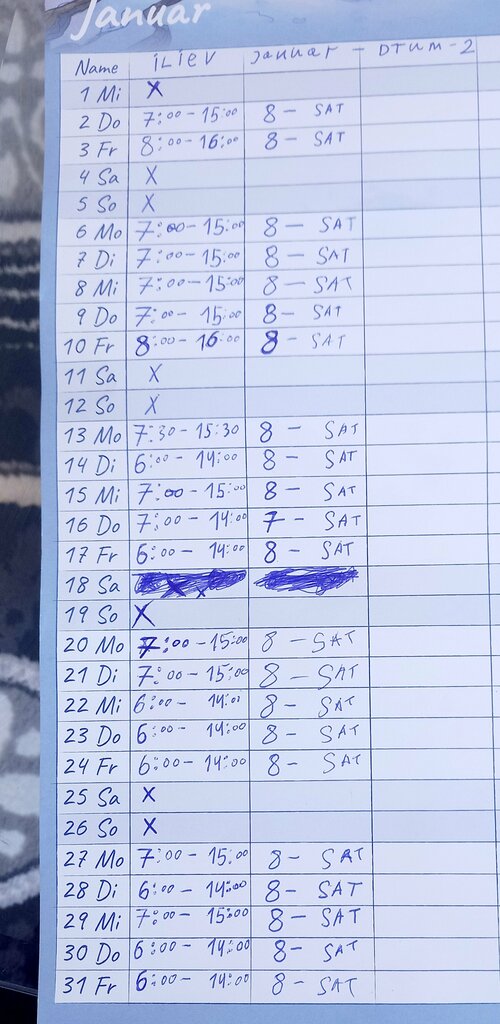 Januar
Name iLiEV Januar - DTUM-2
1 Mi X
2 Do 7:00-15:00 8- SAT
3 Fr 8:00-16:00 8- SAT
4 Sa X
5 So X
6 Mo 7:00-15:00 8- SAT
7 Di 7:00-15:00 8- SAT
8 Mi 7:00-15:00 8- SAT
9 Do 7:00- 15:00 8- SAT
10 Fr 8:00-16:00 8- SAT
11 Sa X
12 So X
13 Mo 7:30-15:30 8 - SAT
14 Di 6:00- 14:00 8 - SAT
15 Mi 7:00-15:00 8 - SAT
16 Do 7:00- 14:00 7 - SAT
17 Fr 6:00- 14:00 8 - SAT
18 Sa X x
19 So X
20 Mo 7:00-15:00 8 - SAT
21 Di 7:00-15:00 8 - SAT
22 Mi 6:00- 8- SAT
23 Do 6:00- 14:00 8- SAT
24 Fr 6:00- 14:00 8- SAT
25 Sa X
26 So X
27 Mo 7:00-15:00 8- SAT
28 Di 6:00-14:00 8- SAT
29 Mi 7:00-15:00 8- SAT
30 Do 6:00-14:00 8- SAT
31 Fr 6:00-14:00 8- SAT